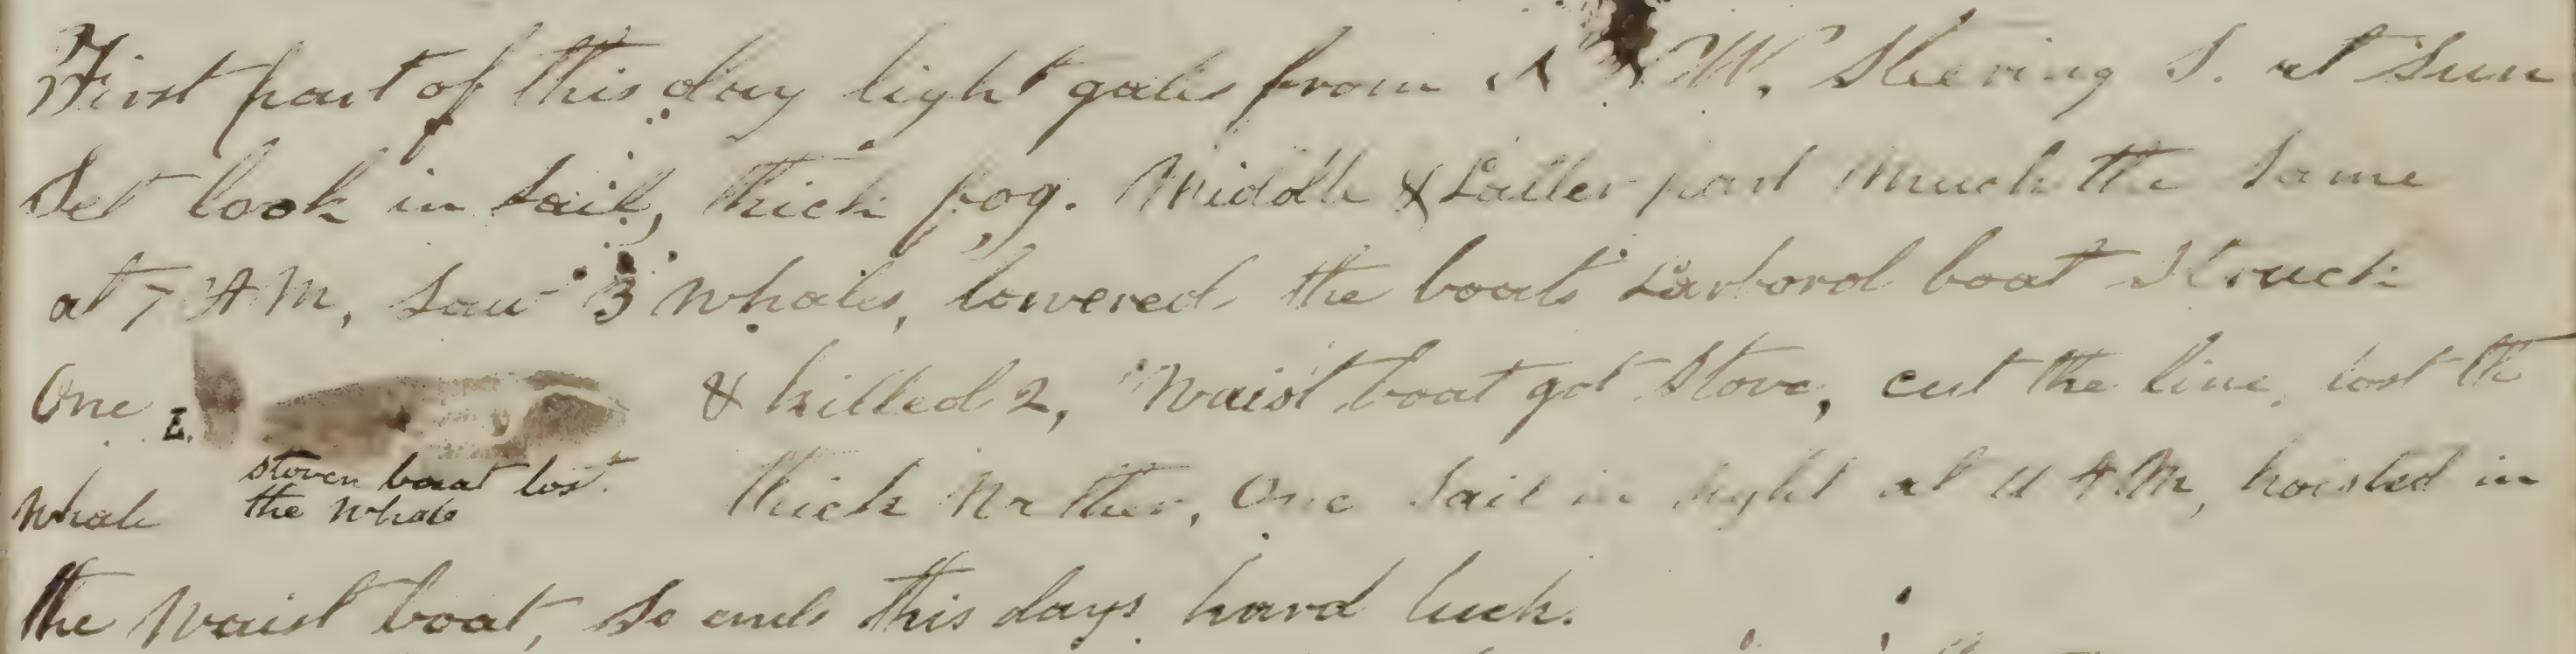 First part of this day light gales from W. Steering S. at Sun
Set took in sail, thick fog. Middle & Latter part Much the Same
at 7 AM, saw 3 whales, lowered the boats Larbord boat Struck
One & killed 2, Waist boat got Stove, cut the line, lost the
L.
stoven boat lost
the whale
Whale thick Wether, One Sail in sight at 11 AM, hoisted in
the Waist boat, So ends this days hard luck.